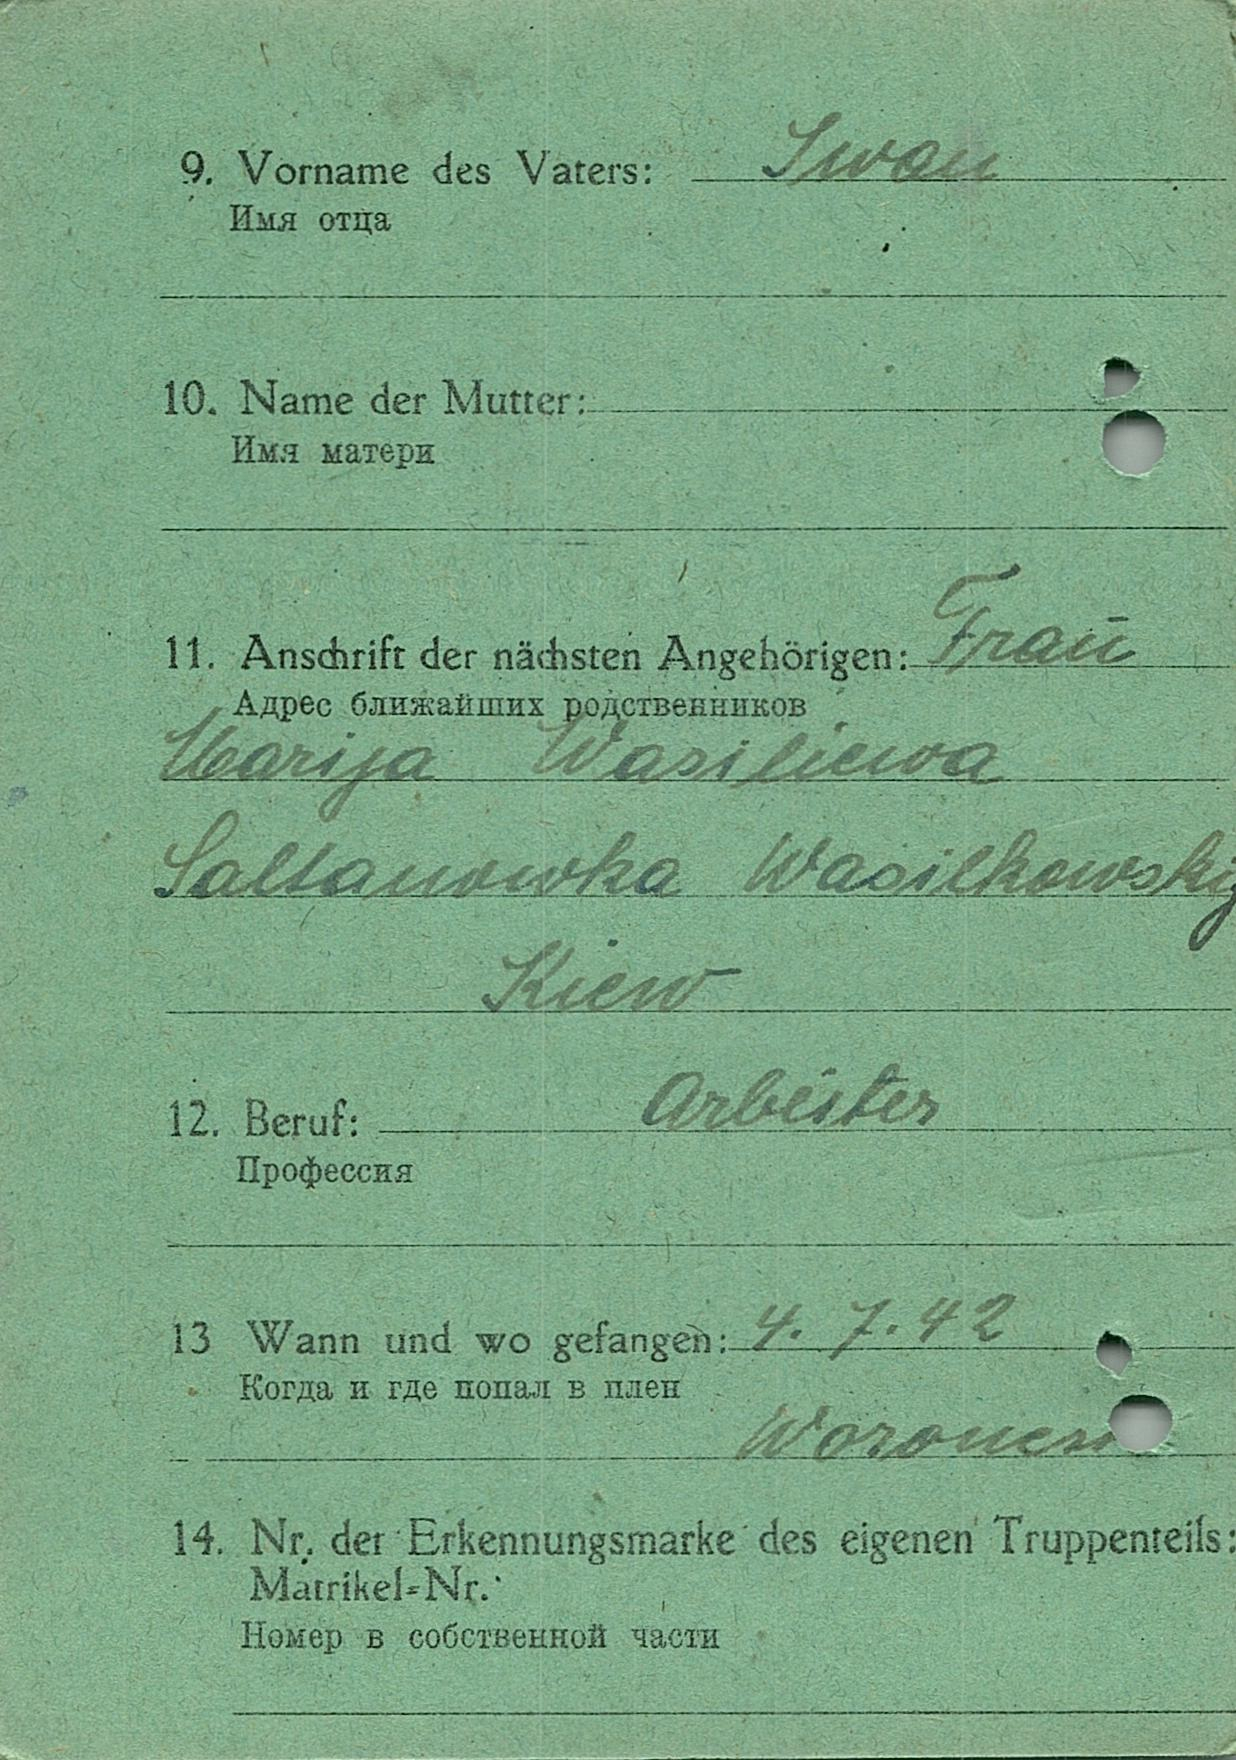 9. Vorname des Vaters: Iwan
Имя отца
10. Name der Mutter:
Имя матери
11. Anschrift der nächsten Angehörigen: Frau
Адрес ближайших родственников
Marija Wasiliewa
Saltanowka Wasilkowskij
Kiew
12. Beruf: Arbeiter
Профессия
13 Wann und wo gefangen: 4. 7. 42
Когда и где попал в плен
14. Nr. der Erkennungsmarke des eigenen Truppenteils:
Matrikel-Nr.
Номер в собственной части